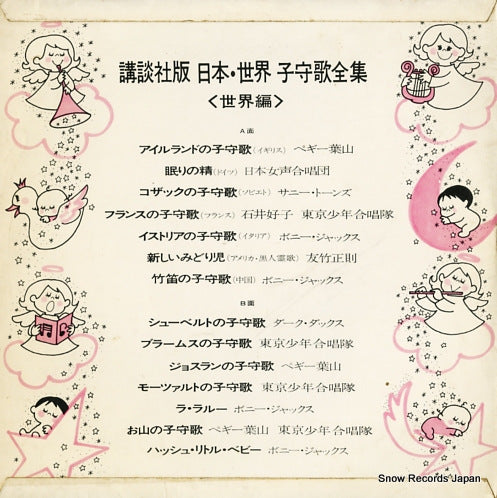 講談社版 日本・世界 子守歌全集
〈世界編〉
A面
アイルランドの子守歌(イギリス) ペギー葉山
眠りの精(ドイツ) 日本女声合唱団
コザックの子守歌(ソビエト) サニー・トーンズ
フランスの子守歌(フランス) 石井好子 東京少年合唱隊
イストリアの子守歌(イタリア) ボニー・ジャックス
新しいみどり児(アメリカ・黒人霊歌) 友竹正則
竹笛の子守歌(中国) ボニー・ジャックス
B面
シューベルトの子守歌 ダーク・ダックス
ブラームスの子守歌 東京少年合唱隊
ジョスランの子守歌 ペギー葉山
モーツァルトの子守歌 東京少年合唱隊
ラ・ラルー ボニー・ジャックス
お山の子守歌 ペギー葉山 東京少年合唱隊
ハッシュ・リトル・ベビー ボニー・ジャックス
Snow Records Japan